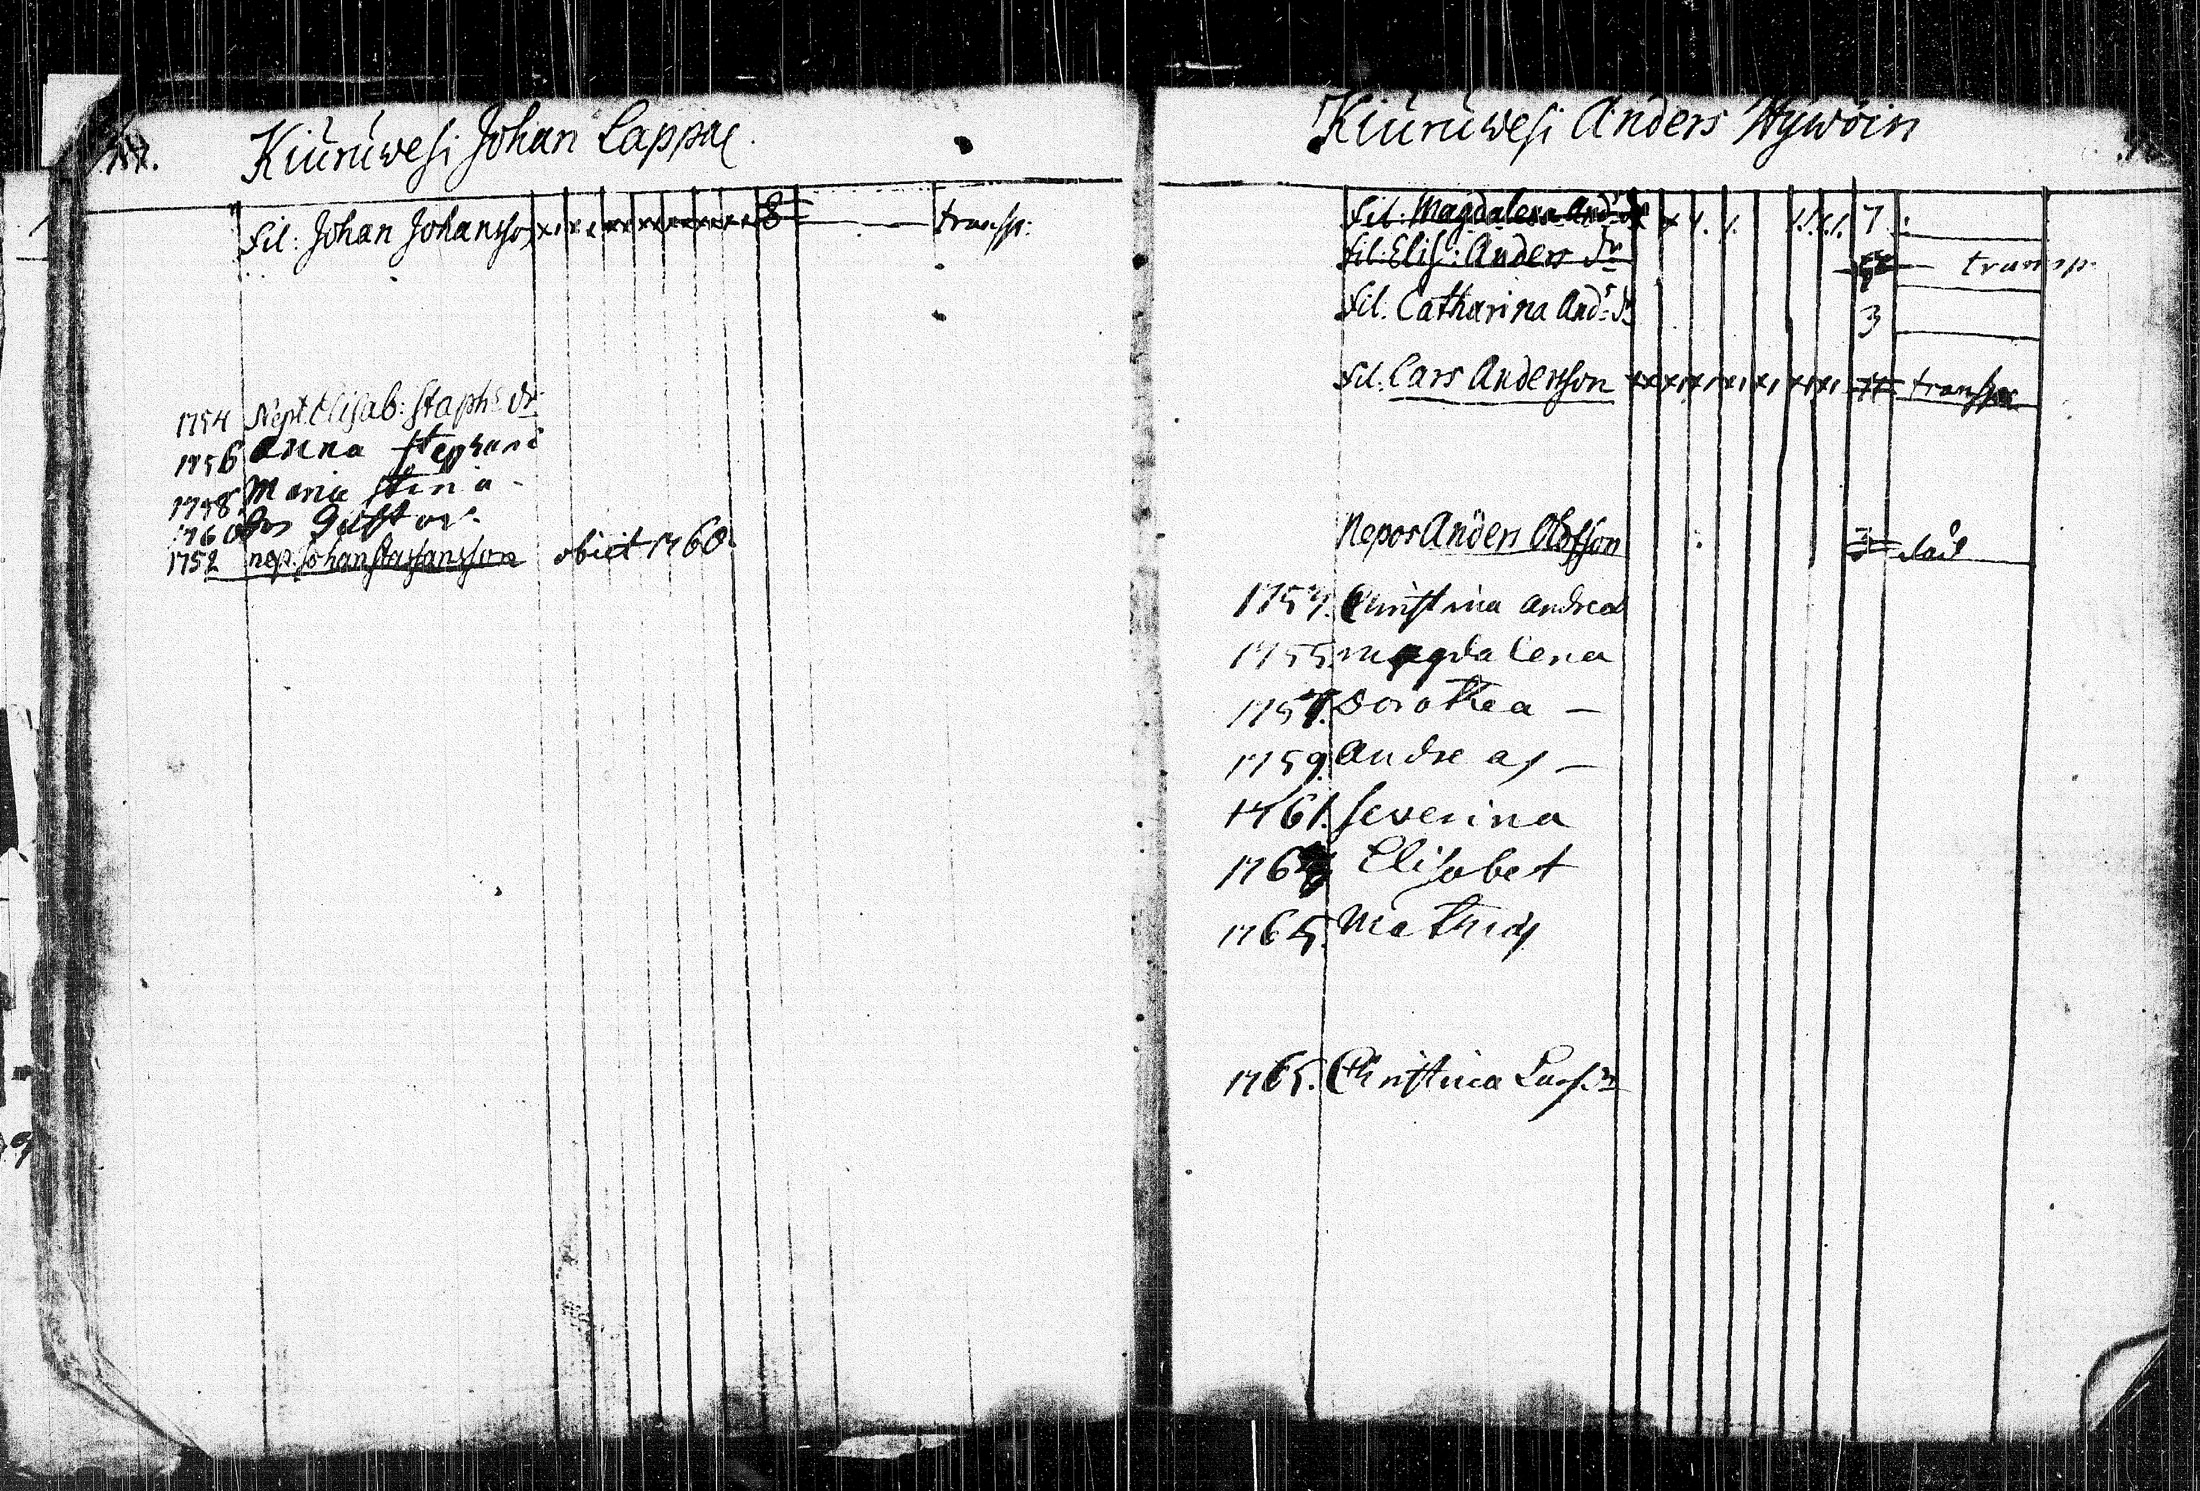 Kiuruwesi Johan Lappal.
fil: Johan Johansso xxxxxxxxxxxxx 8 transp:
1754 Nept. Elisab: Staphs dr
1756 Anna Stephans
1758 Maria Stina -
1760 Gustav.
1752 nep. Johan Staffansson obiit 1760.
Kiuruwesi Anders Hywöin
fil: Magdalena And: dr x x x. x. x.x.x. 7
fil: Elis: Anders Dr transp.
fil. Catharina And:s Dr 3
fil. Lars Andersson xxxxxxxxxxxx 11 transp
Nepos Anders Olofsson död
1754. Christina Andreæ
1755. Magdalena
1757. Dorothea -
1759. Andreas -
1761. Severina
176 Elisabet
1765. Mathias
1765. Christina Larsdr